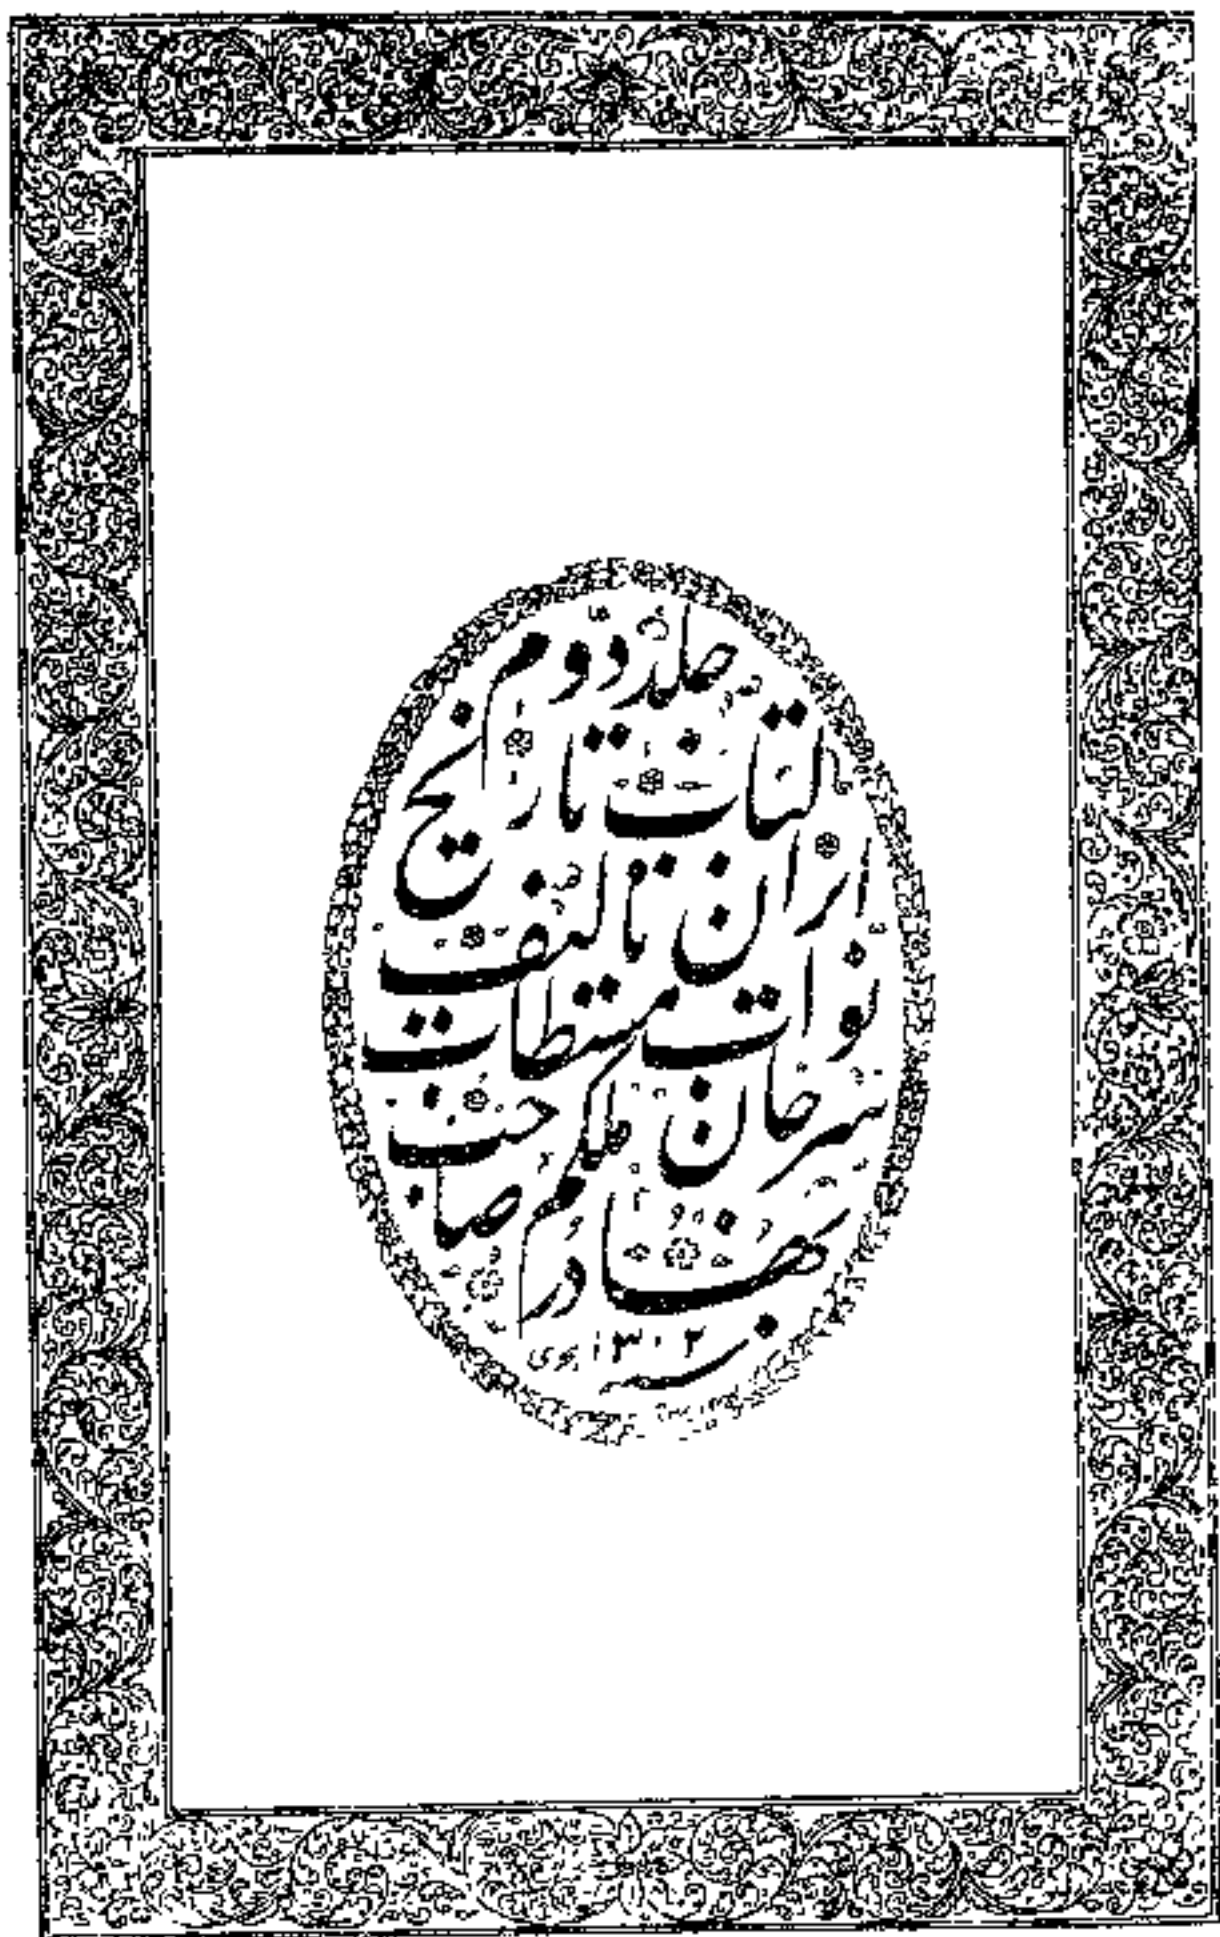 جلد دوم
کتاب تاریخ
ایران تالیف
نواب مستطاب
سرجان ملکم صاحب
بهادر
سنه ۱۳۰۲ هجری